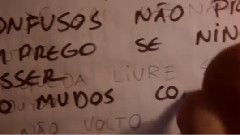 ONFUSOS NÃO PI
MPREGO SE NIN
SSER DA LIVRE
O MUDOS CO
NÃO VOLTO